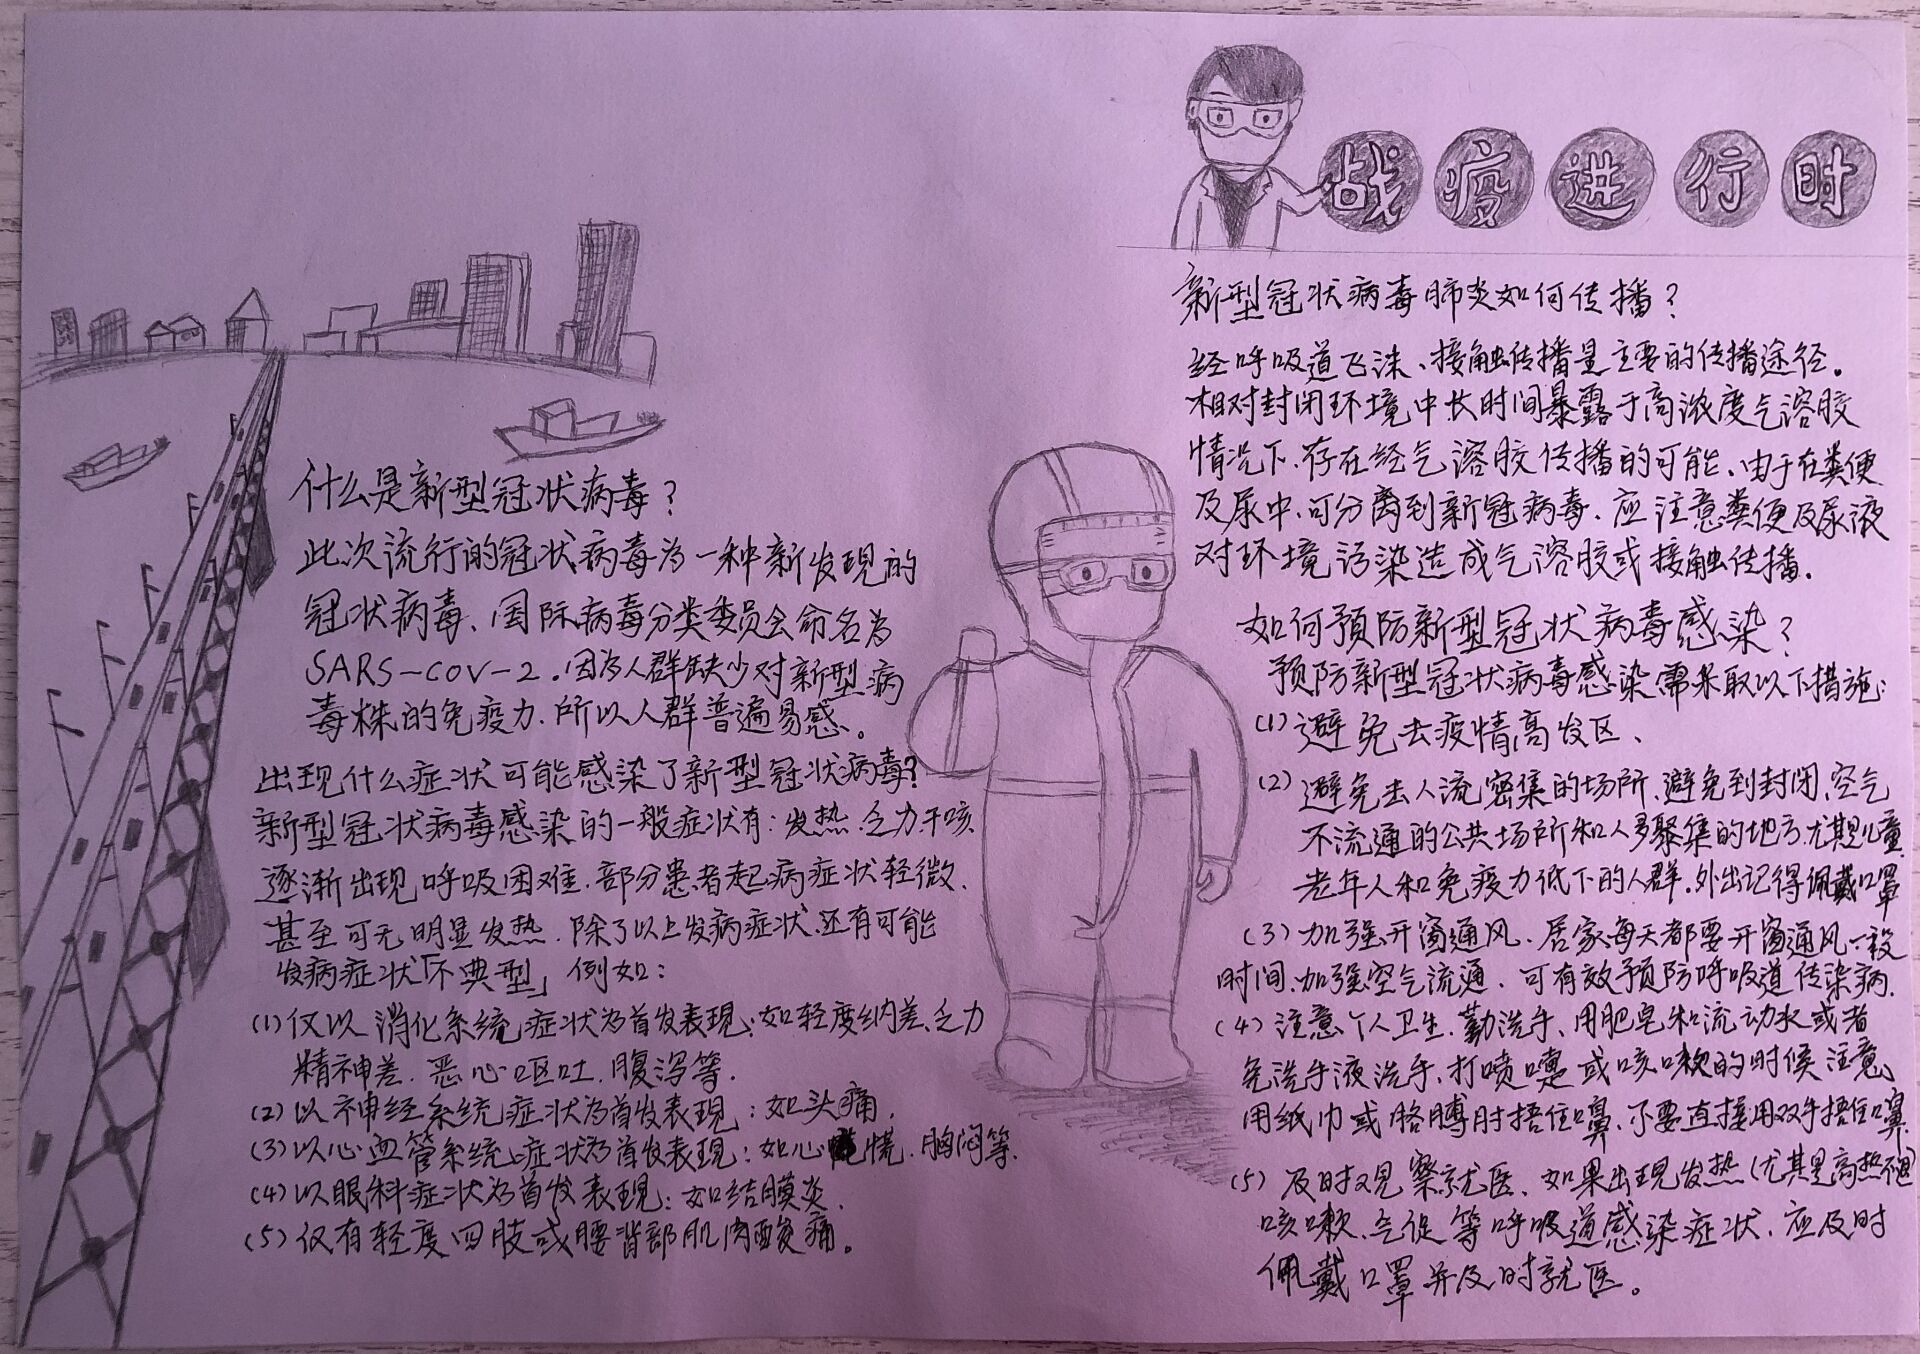 战疫进行时
什么是新型冠状病毒？
此次流行的冠状病毒为一种新发现的
冠状病毒、国际病毒分类委员会命名为
SARS-COV-2.因为人群缺少对新型病
毒株的免疫力.所以人群普遍易感。
出现什么症状可能感染了新型冠状病毒？
新型冠状病毒感染的一般症状有：发热.乏力.干咳.
逐渐出现呼吸困难.部分患者起病症状轻微.
甚至可无明显发热.除了以上发病症状.还有可能
发病症状「不典型」例如：
(1)仅以消化系统症状为首发表现：如轻度纳差、乏力
精神差.恶心呕吐.腹泻等.
(2)以神经系统症状为首发表现：如头痛.
(3)以心血管系统症状为首发表现：如心慌.胸闷等.
(4)以眼科症状为首发表现：如结膜炎.
(5)仅有轻度四肢或腰背部肌肉酸痛。
新型冠状病毒肺炎如何传播？
经呼吸道飞沫、接触传播是主要的传播途径。
相对封闭环境中长时间暴露于高浓度气溶胶
情况下.存在经气溶胶传播的可能.由于在粪便
及尿中.可分离到新冠病毒.应注意粪便及尿液
对环境污染造成气溶胶或接触传播.
如何预防新型冠状病毒感染？
预防新型冠状病毒感染需采取以下措施：
(1)避免去疫情高发区、
(2)避免去人流密集的场所.避免到封闭.空气
不流通的公共场所和人多聚集的地方.尤其儿童.
老年人和免疫力低下的人群.外出记得佩戴口罩
(3)加强开窗通风.居家每天都要开窗通风一段
时间.加强空气流通.可有效预防呼吸道传染病.
(4)注意个人卫生.勤洗手、用肥皂和流动水或者
免洗手液洗手、打喷嚏或咳嗽的时候注意
用纸巾或胳膊肘捂住口鼻.不要直接用双手捂住口鼻.
(5)及时观察就医.如果出现发热(尤其是高热不退)
咳嗽.气促等呼吸道感染症状.应及时
佩戴口罩并及时就医。